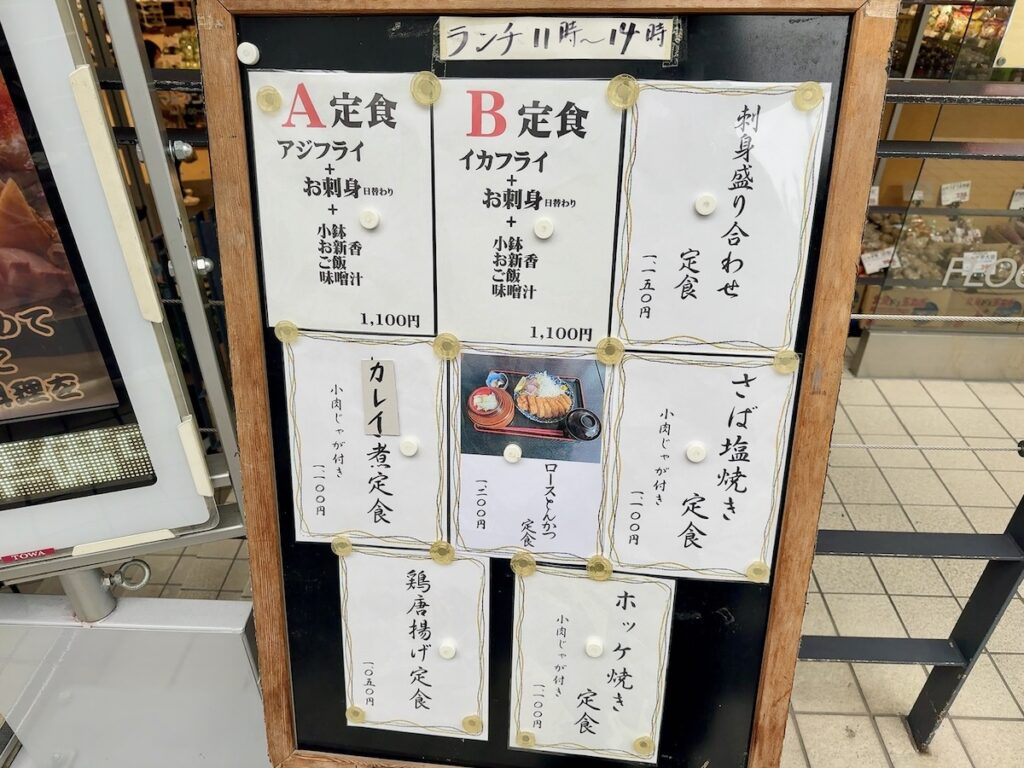 ランチ 11時〜14時
A 定食
アジフライ
+
お刺身 日替わり
+
小鉢
お新香
ご飯
味噌汁
1,100円
B 定食
イカフライ
+
お刺身 日替わり
+
小鉢
お新香
ご飯
味噌汁
1,100円
刺身盛り合わせ
定食
一、一五〇円
カレイ煮定食
小肉じゃが付き
一、一〇〇円
ロースとんかつ
定食
一、二〇〇円
さば塩焼き
定食
小肉じゃが付き
一、一〇〇円
鶏唐揚げ定食
一、〇五〇円
ホッケ焼き
定食
小肉じゃが付き
一、一〇〇円
めて
料理を
TOWA